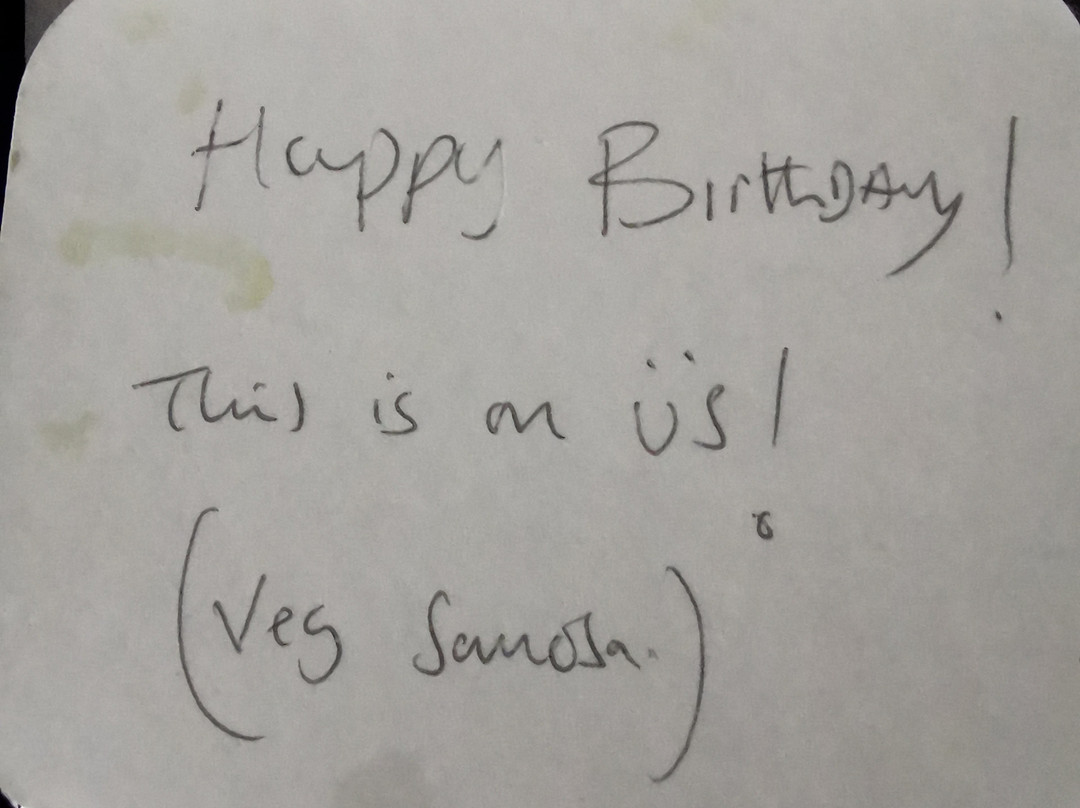 Happy BirthDAy!
This is on üs!
(Veg Samosa.)